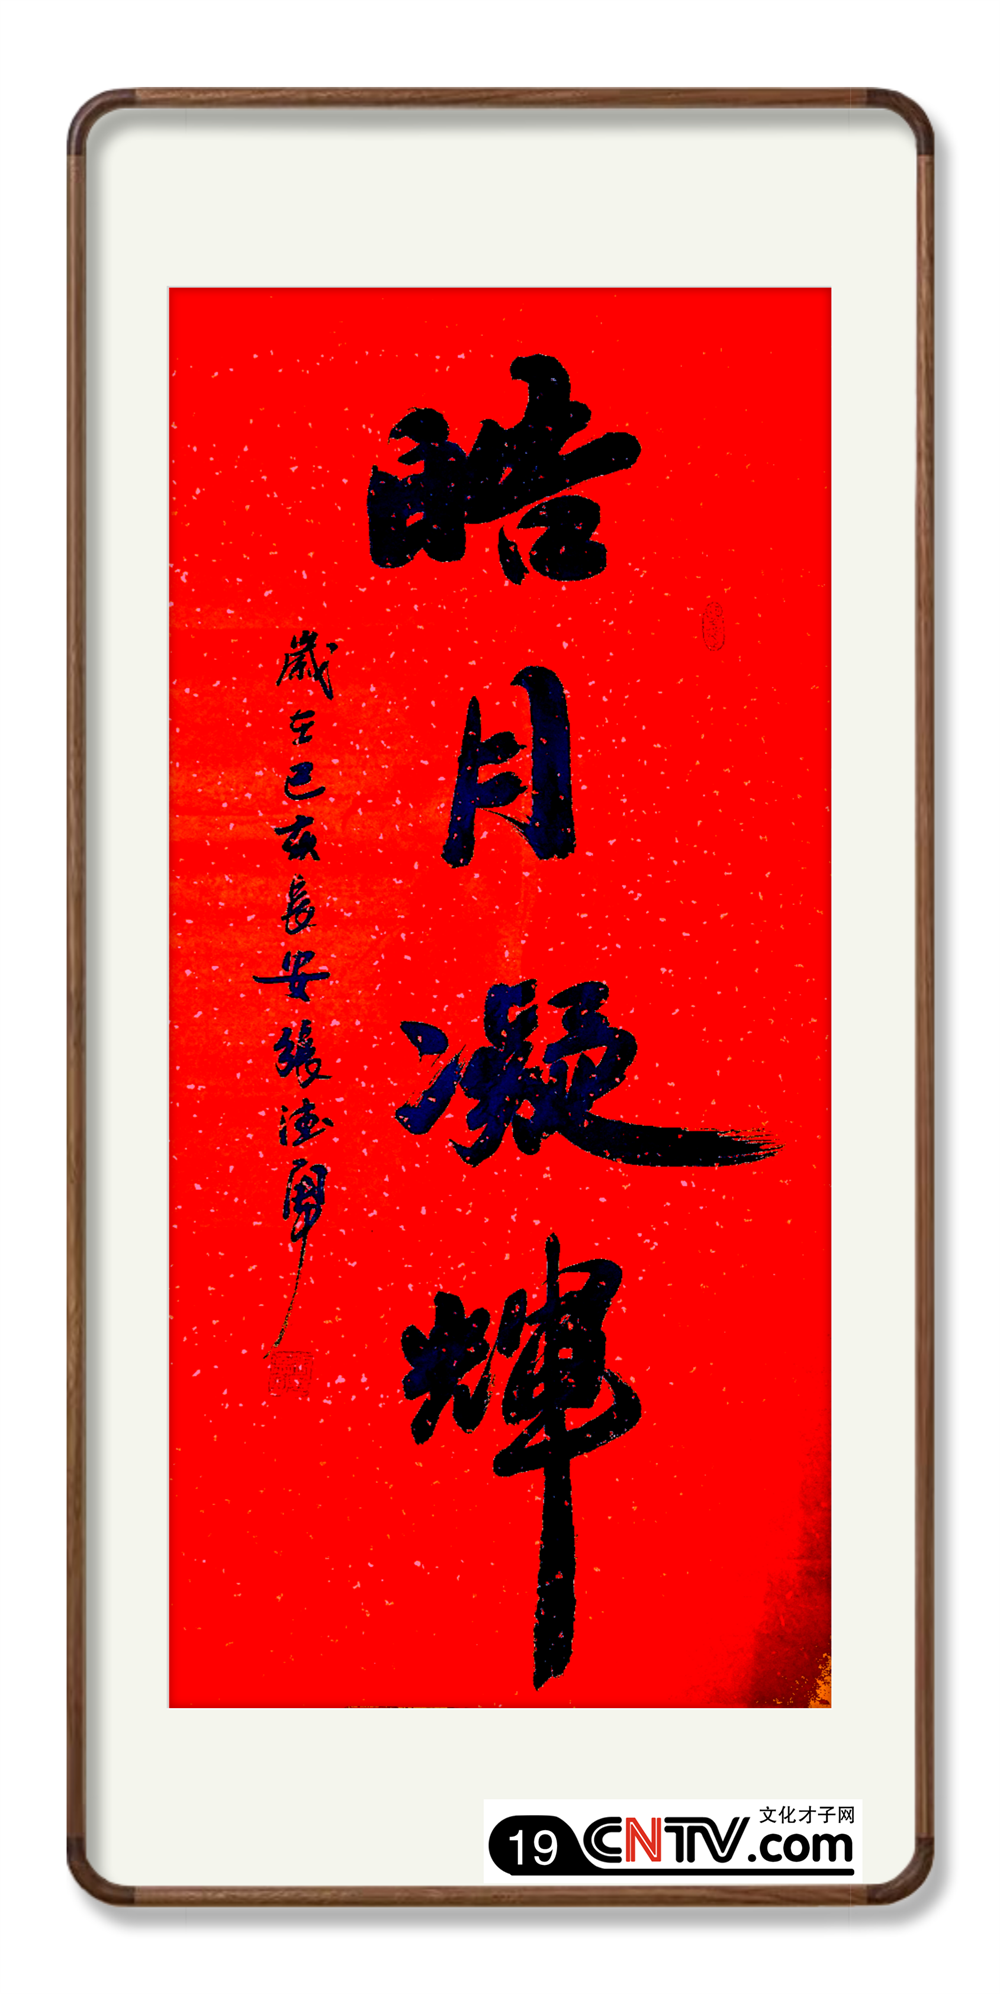 皓月凝輝
歲在己亥長安張德寧
文化才子网
19 CNTV.com